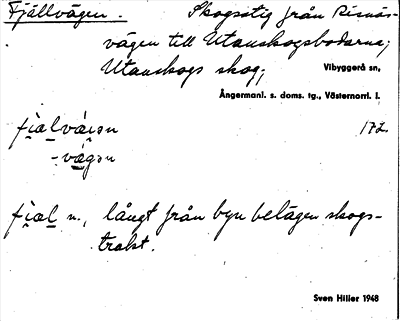 Fjällvägen. Skogsstig från Risnäs-
vägen till Utanskogsbodarna;
Utanskogs skog; Vibyggerå sn,
Ångermanl. s. doms. tg., Västernorrl. l.
fi̯alvä́i̯ən 172.
-vä̀gən
fi̯al n., långt från byn belägen skogs-
trakt.
Sven Hiller 1948